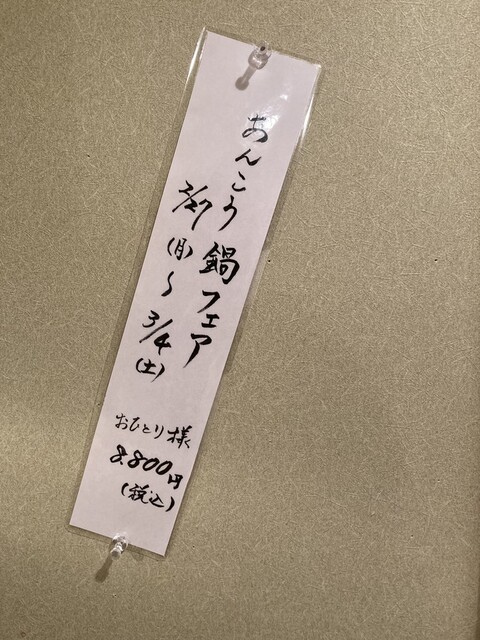 あんこう鍋フェア
2/27(月)〜3/4(土)
おひとり様
8.800円
(税込)